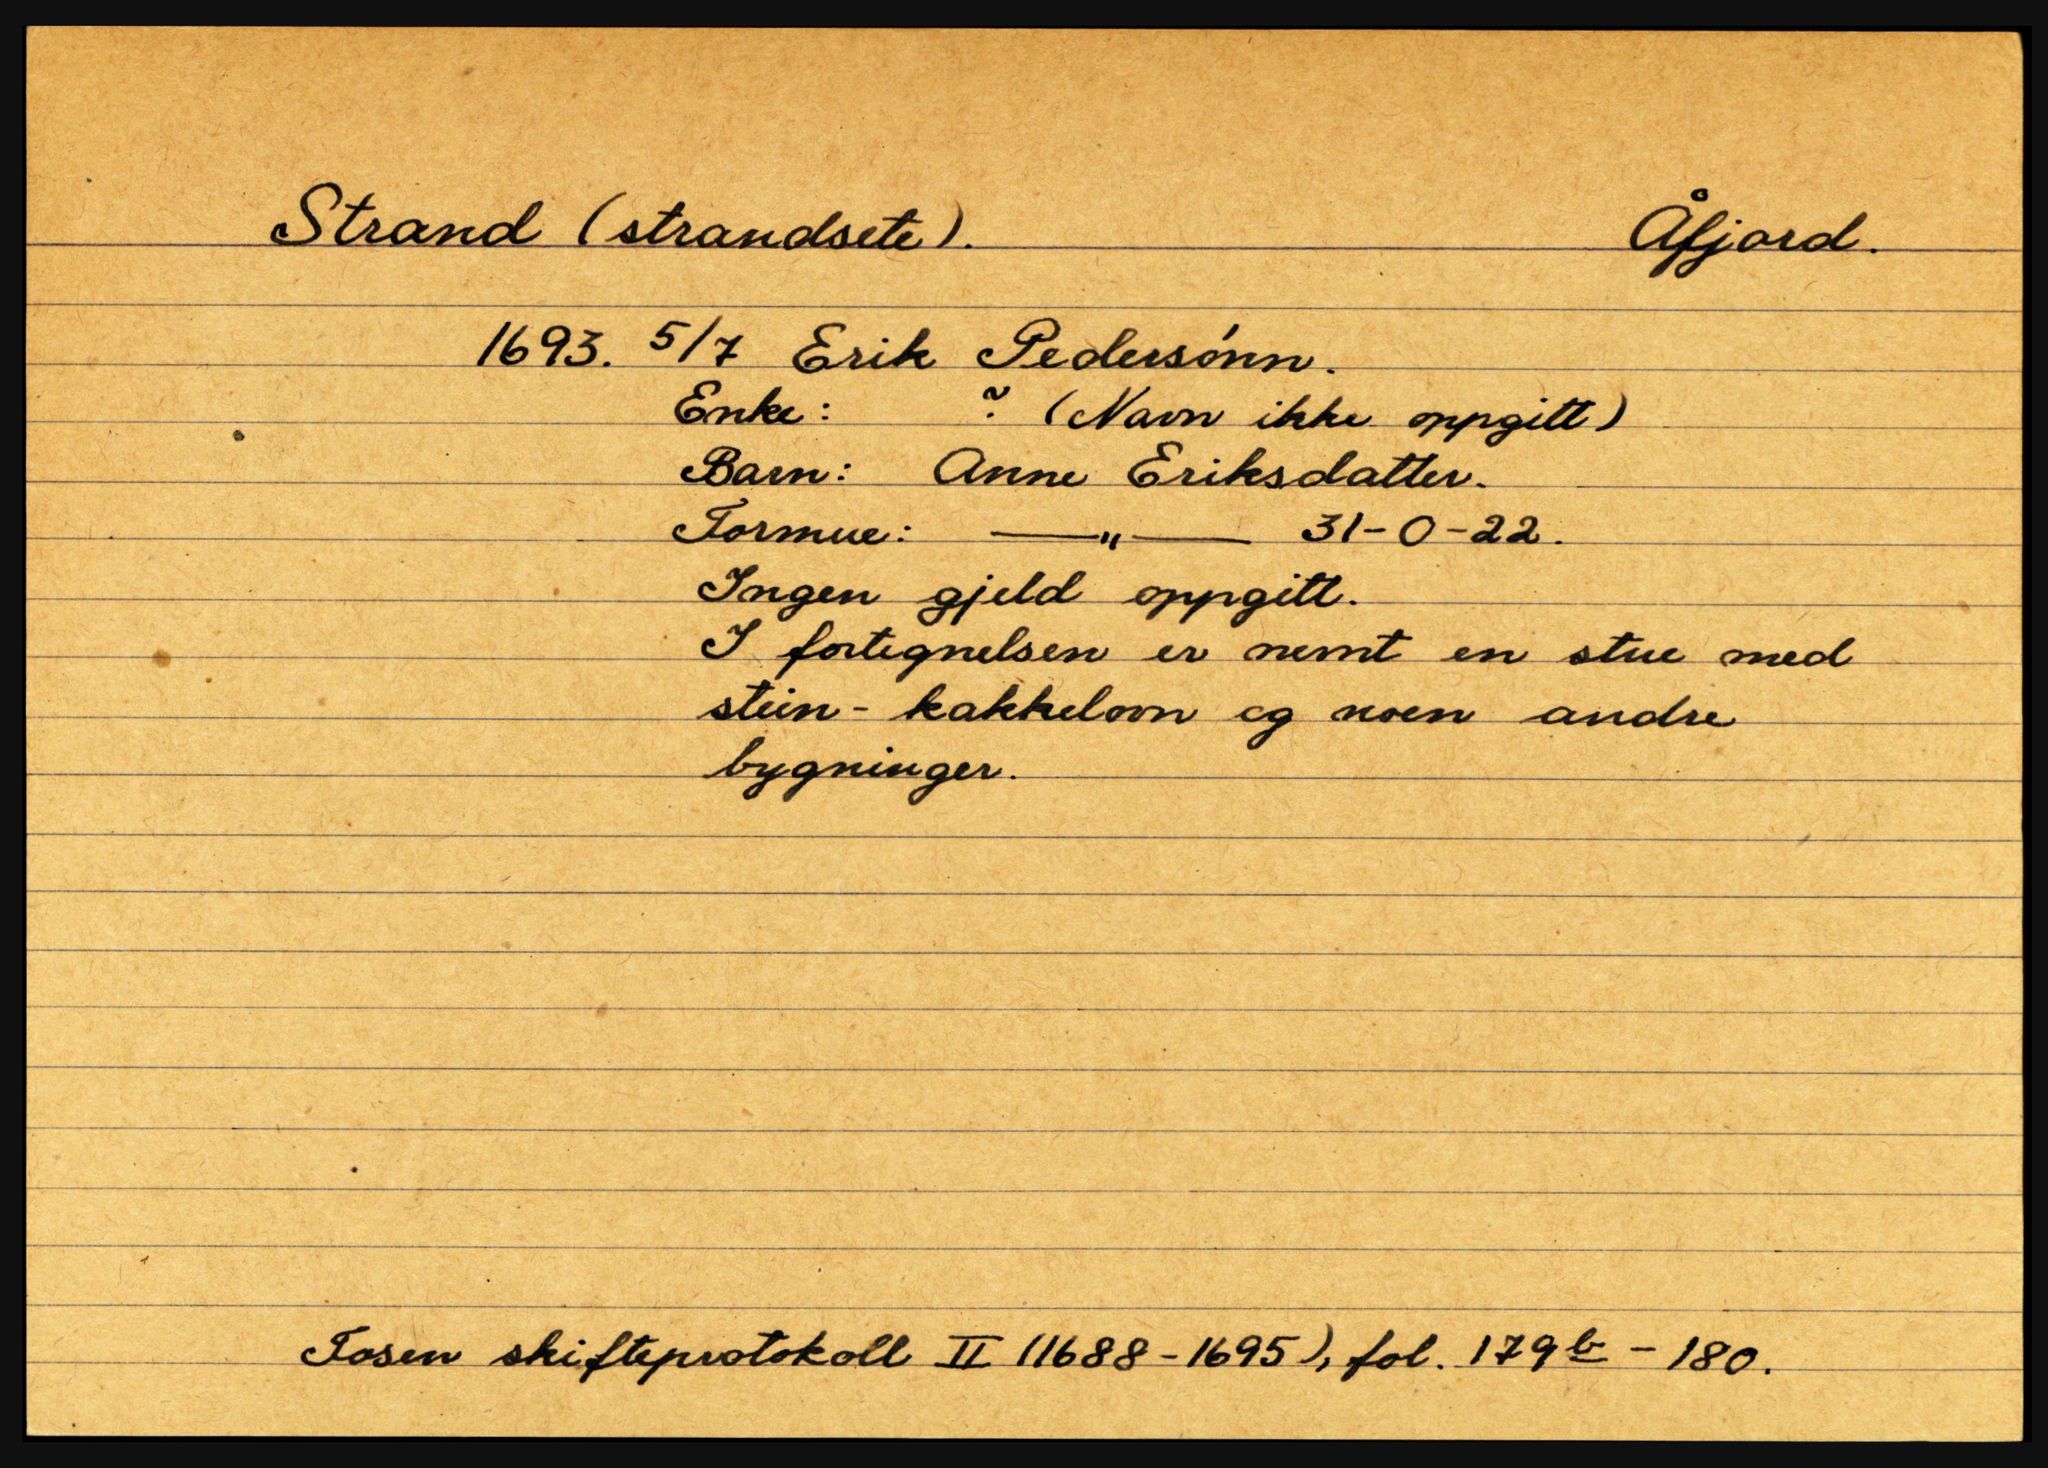 Strand (strandsete). Åfjord.
1693. 5/7 Erik Pedersónn.
Enke: ? (Navn ikke oppgitt)
Barn: Anne Eriksdatter.
Formue: —"— 31-0-22.
Ingen gjeld oppgitt.
I fortegnelsen er nemt en stue med
stein- kakkelovn og noen andre
bygninger.
Fosen skifteprotokoll II (1688-1695), fol. 179b - 180.